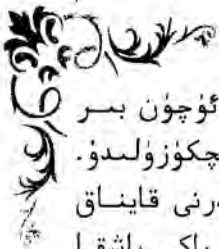 ئۈچۈن بىر
چكۈزۈلىدۇ.
رنى قايناق
باشقا